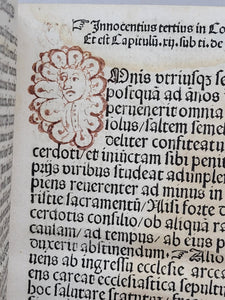 ☞ Innocentius tertius in Co
Et est Capitulū. xij. sub ti. de
Mnis vtriusqꝫ se
postquā ad ānos
peruenerit omnia
solus/saltem semel
deliter confiteatu
cerdoti ⁊ iniūctam sibi peni
prijs viribus studeat adimplen
piens reuerenter ad minus in
ristie sacramentū/Nisi forte
cerdotis consilio/ob aliquā ra
caulam/ad tempus/ab eius p
duxerit abstinendum. ☞Alio
uens ab ingressu ecclesie arcea
ens careat ecclesiastica sepultu
hoc salutare statutu